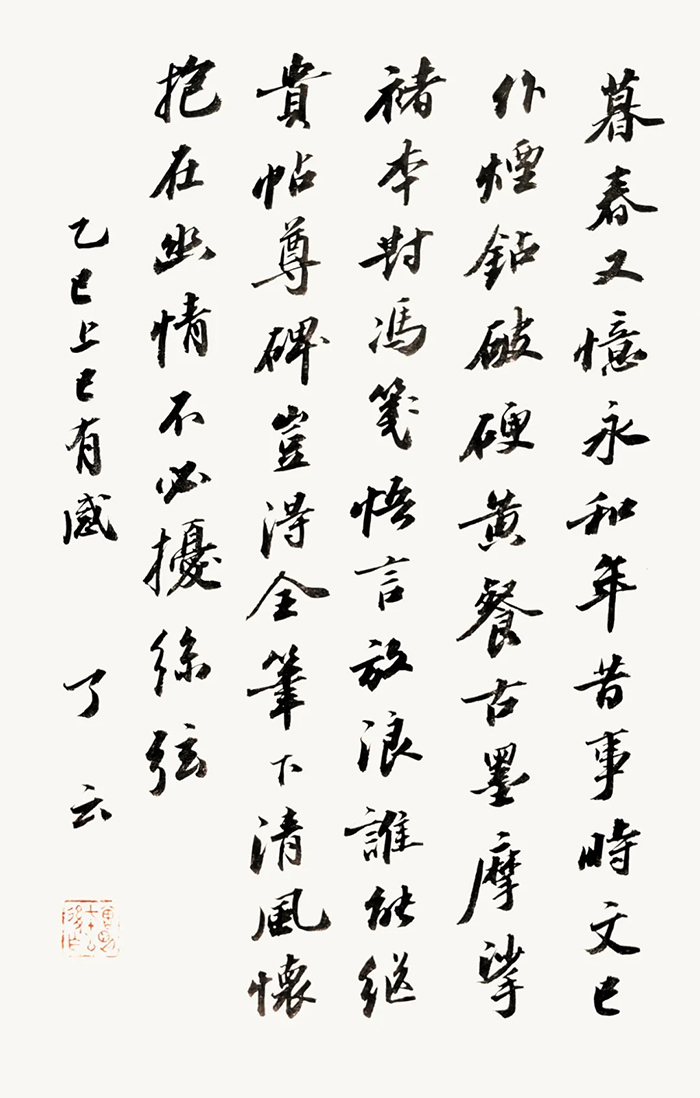 暮春又憶永和年昔事時文已
仆煙鉆破硬黃餐古墨摩挲
褚本對馮箋悟言放浪誰能繼
貴帖尊碑豈得全筆下清風懷
抱在幽情不必擾絲弦
乙巳上巳有感 了云